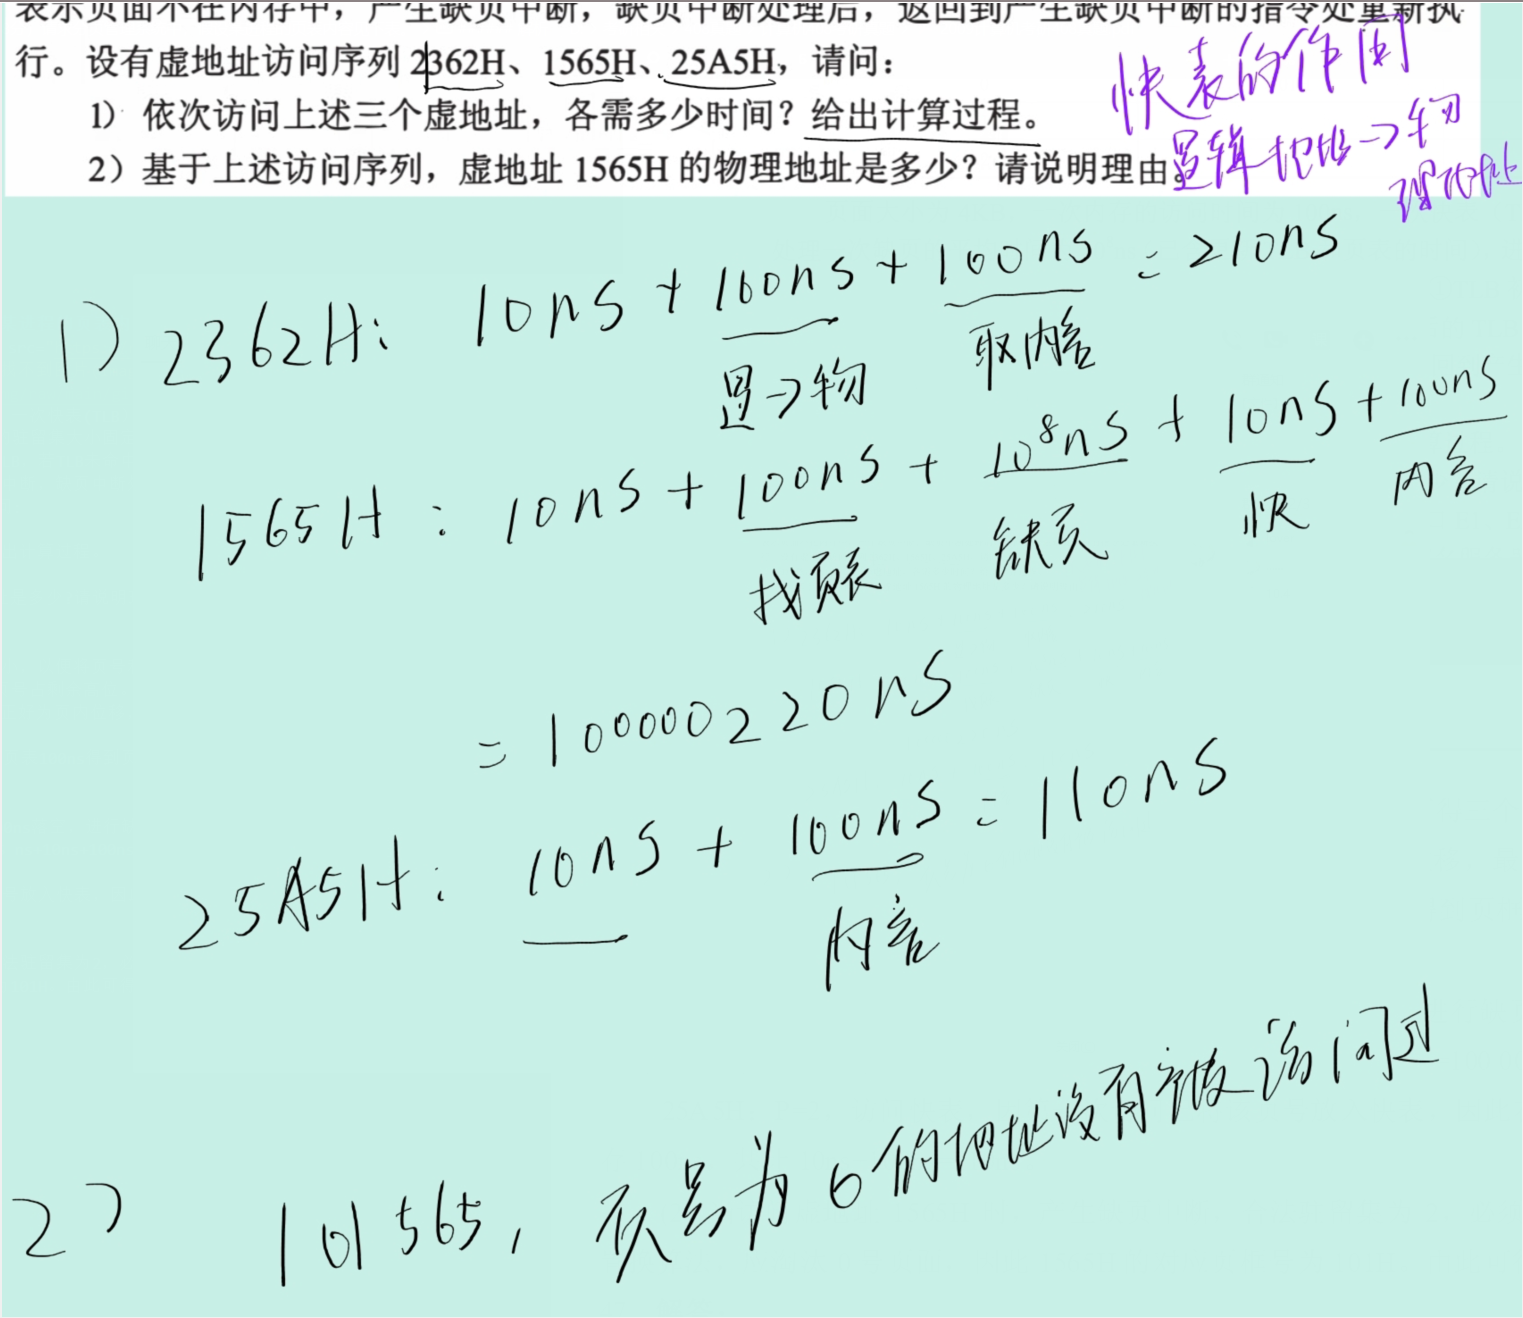 表示页面不在内存中，产生缺页中断，缺页中断处理后，返回到产生缺页中断的指令处重新执
行。设有虚地址访问序列 2362H、1565H、25A5H，请问：
1） 依次访问上述三个虚地址，各需多少时间？给出计算过程。
2）基于上述访问序列，虚地址 1565H 的物理地址是多少？请说明理由。
快表的作用
逻辑地址->物
理地址
1) 2362H: 10ns + 100ns + 100ns = 210ns
逻->物 取内容
1565H : 10ns + 100ns + 10⁸ns + 10ns + 100ns
找页表 缺页 快 内容
= 100000220ns
25A5H: 10ns + 100ns = 110ns
内容
2) 101565, 页号为 0 的地址没有被访问过